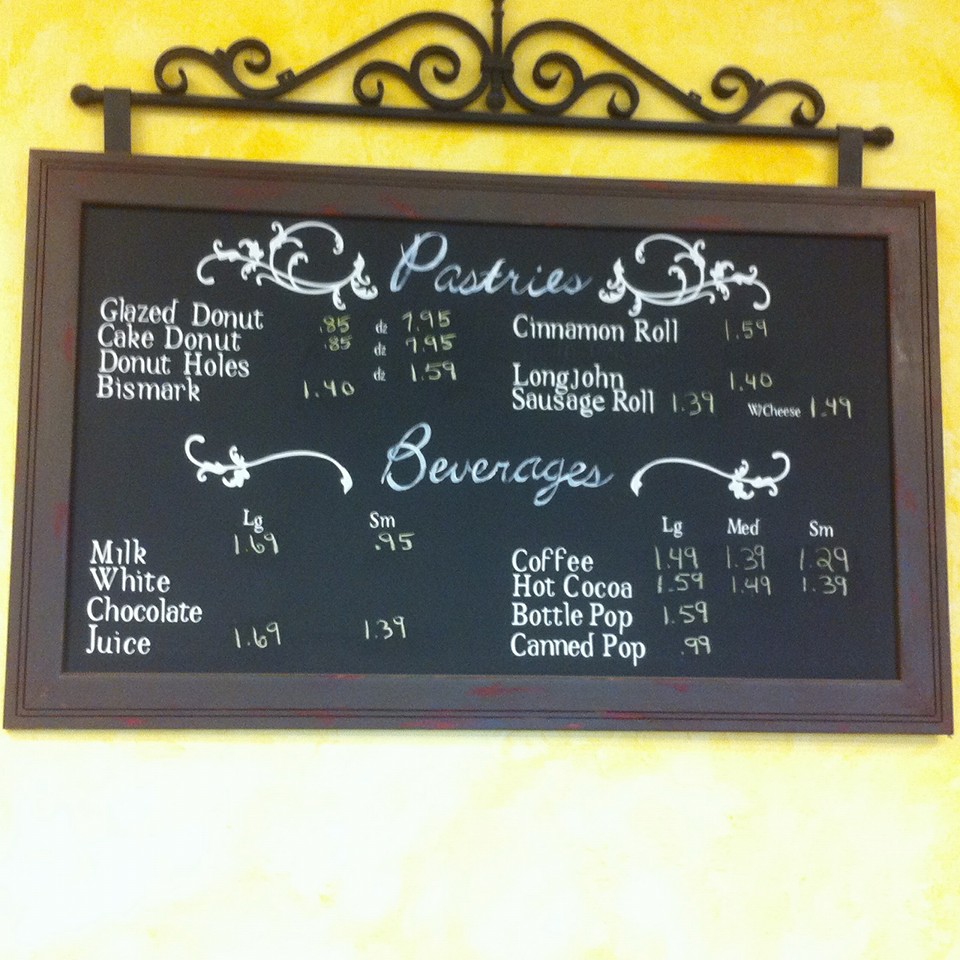 Pastries
Glazed Donut .85 dz 7.95
Cake Donut .85 dz 7.95
Donut Holes dz 1.59
Bismark 1.40
Cinnamon Roll 1.59
Longjohn 1.40
Sausage Roll 1.39 W/Cheese 1.49
Beverages
Lg Sm
Milk 1.69 .95
White
Chocolate
Juice 1.69 1.39
Lg Med Sm
Coffee 1.49 1.39 1.29
Hot Cocoa 1.59 1.49 1.39
Bottle Pop 1.59
Canned Pop .99